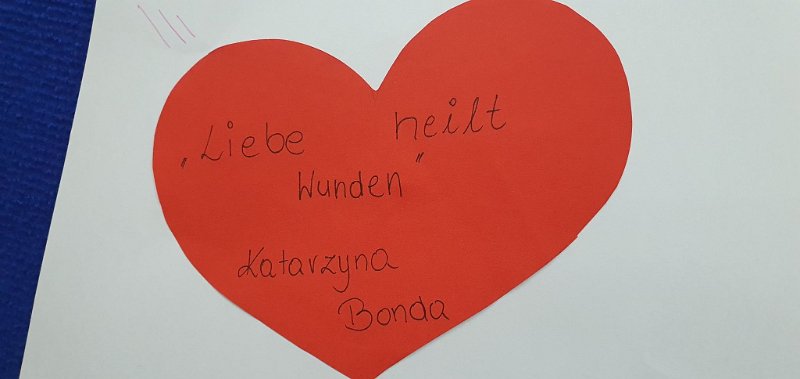 „Liebe heilt
Wunden”
Katarzyna
Bonda